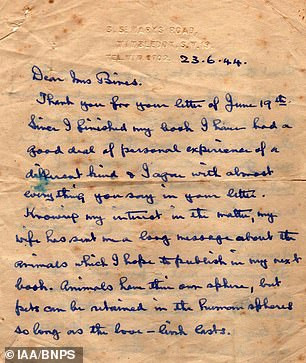 5. ST. MARY'S ROAD,
WIMBLEDON, S.W.19
23.6.44.
Dear Mrs Bines.
Thank you for your letter of June 19th.
Since I finished my book I have had a
good deal of personal experience of a
different kind & I agree with almost
everything you say in your letter.
Knowing my interest in the matter, my
wife has sent me a long message about the
animals which I hope to publish in my next
book. Animals have their own sphere, but
pets can be retained in the human spheres
so long as the love-link lasts.
© IAA/BNPS